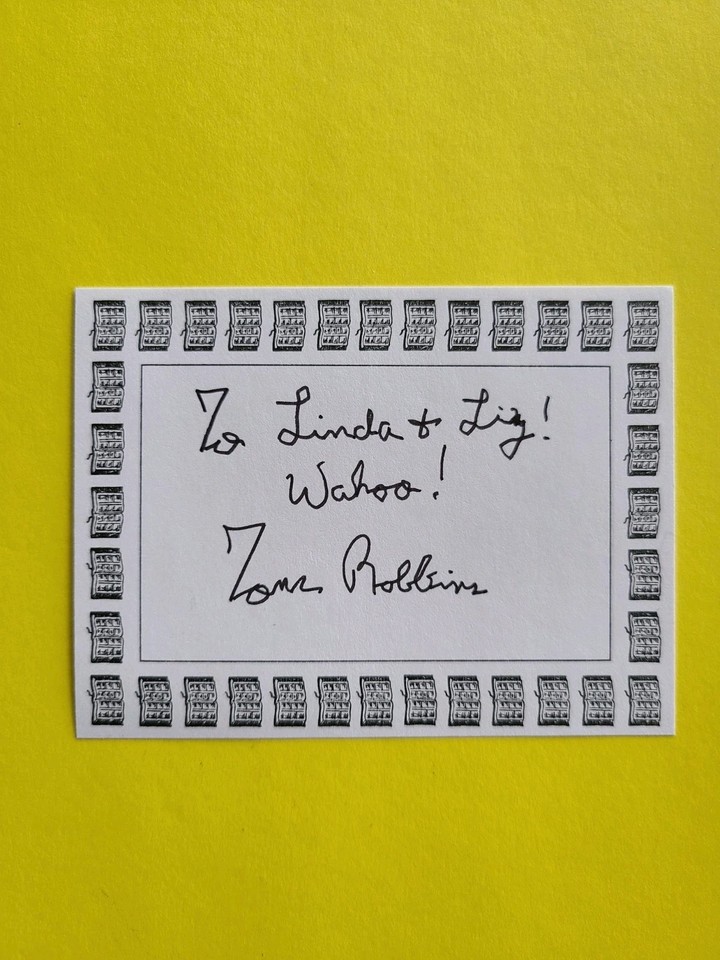 To Linda & Liz!
Wahoo!
Tom Robbins